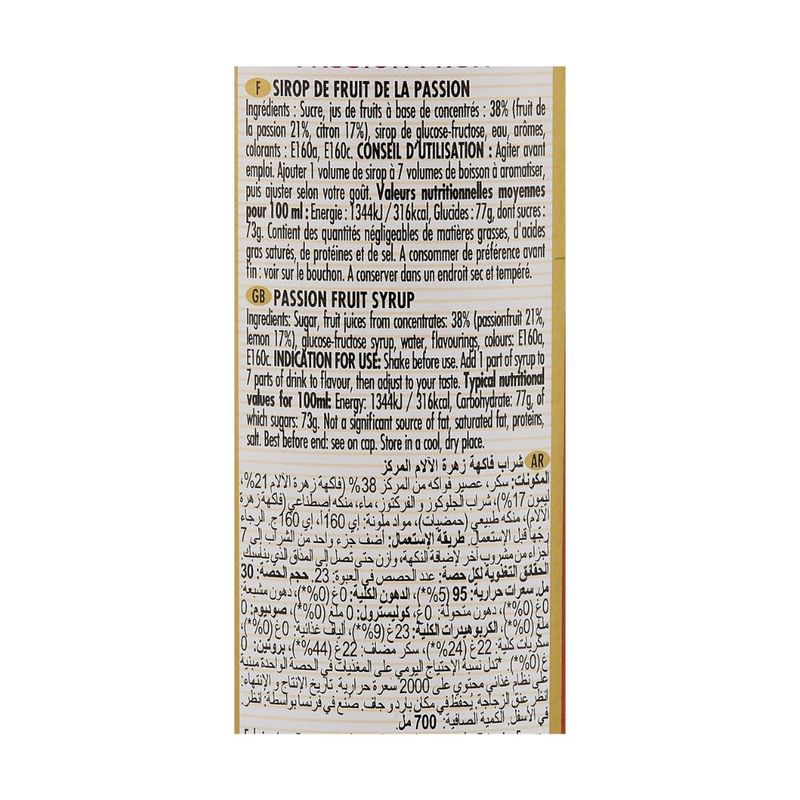 F SIROP DE FRUIT DE LA PASSION
Ingrédients : Sucre, jus de fruits à base de concentrés : 38% (fruit de
la passion 21%, citron 17%), sirop de glucose-fructose, eau, arômes,
colorants : E160a, E160c. CONSEIL D'UTILISATION : Agiter avant
emploi. Ajouter 1 volume de sirop à 7 volumes de boisson à aromatiser,
puis ajuster selon votre goût. Valeurs nutritionnelles moyennes
pour 100 ml : Energie : 1344kJ / 316kcal, Glucides : 77g, dont sucres :
73g. Contient des quantités négligeables de matières grasses, d'acides
gras saturés, de protéines et de sel. A consommer de préférence avant
fin : voir sur le bouchon. A conserver dans un endroit sec et tempéré.
GB PASSION FRUIT SYRUP
Ingredients: Sugar, fruit juices from concentrates: 38% (passionfruit 21%,
lemon 17%), glucose-fructose syrup, water, flavourings, colours: E160a,
E160c. INDICATION FOR USE: Shake before use. Add 1 part of syrup to
7 parts of drink to flavour, then adjust to your taste. Typical nutritional
values for 100ml: Energy: 1344kJ / 316kcal, Carbohydrate: 77g, of
which sugars: 73g. Not a significant source of fat, saturated fat, proteins,
salt. Best before end: see on cap. Store in a cool, dry place.
AR شراب فاكهة زهرة الآلام المركز
المكونات: سكر، عصير فواكه من المركز 38% (فاكهة زهرة الآلام 21%،
ليمون 17%)، شراب الجلوكوز و الفركتوز، ماء، منكه إصطناعي (فاكهة زهرة
الآلام)، منكه طبيعي (حمضيات)، مواد ملونة: إي160أ، إي160ج. الرجاء
رجها قبل الإستعمال. طريقة الإستعمال: أضف جزء واحد من الشراب إلى 7
أجزاء من مشروب آخر لإضافة النكهة، وازن حتى تصل إلى المذاق الذي يناسبك.
الحقائق التغذوية لكل حصة: عدد الحصص في العبوة: 23. حجم الحصة: 30
مل. سعرات حرارية: 95 (5%*)، الدهون الكلية: 0غ (0%*)، دهون مشبعة:
0غ (0%*)، دهون متحولة: 0غ، كوليسترول: 0 ملغ (0%*)، صوديوم: 0
ملغ (0%*)، الكربوهيدرات الكلية: 23غ (9%*)، ألياف غذائية: 0غ (0%*)،
سكريات كلية: 22غ (24%*)، سكر مضاف: 22غ (44%*)، بروتين: 0
غ (0%*) *تدل نسبة الإحتياج اليومي على المغذيات في الحصة الواحدة مبنية
على نظام غذائي محتوي على 2000 سعرة حرارية. تاريخ الإنتاج و الإنتهاء:
انظر عنق الزجاجة. يُحفظ في مكان بارد و جاف. صنع في فرنسا بواسطة: انظر
في الأسفل. الكمية الصافية: 700 مل.